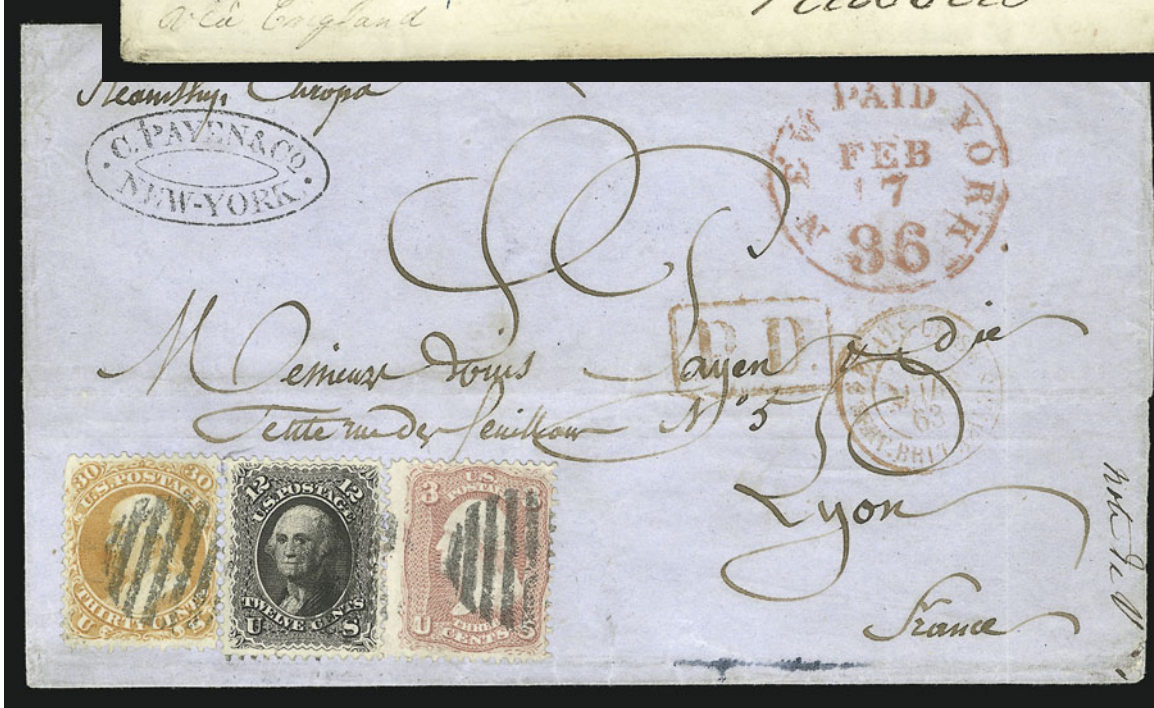 via England
Steamship Europa
C. PAYEN & CO
NEW-YORK.
NEW YORK
PAID
FEB
17
36
P.D.
Messieurs Louis Payen & Cie
Petite rue des Feuillans N° 5
Lyon
France
ET. UNIS
SERV. BRIT.
63
30 30
U.S. POSTAGE
THIRTY CENTS
U S
12 12
U.S. POSTAGE
TWELVE CENTS
U S
3 3
U.S.
POSTAGE
THREE
CENTS
U S